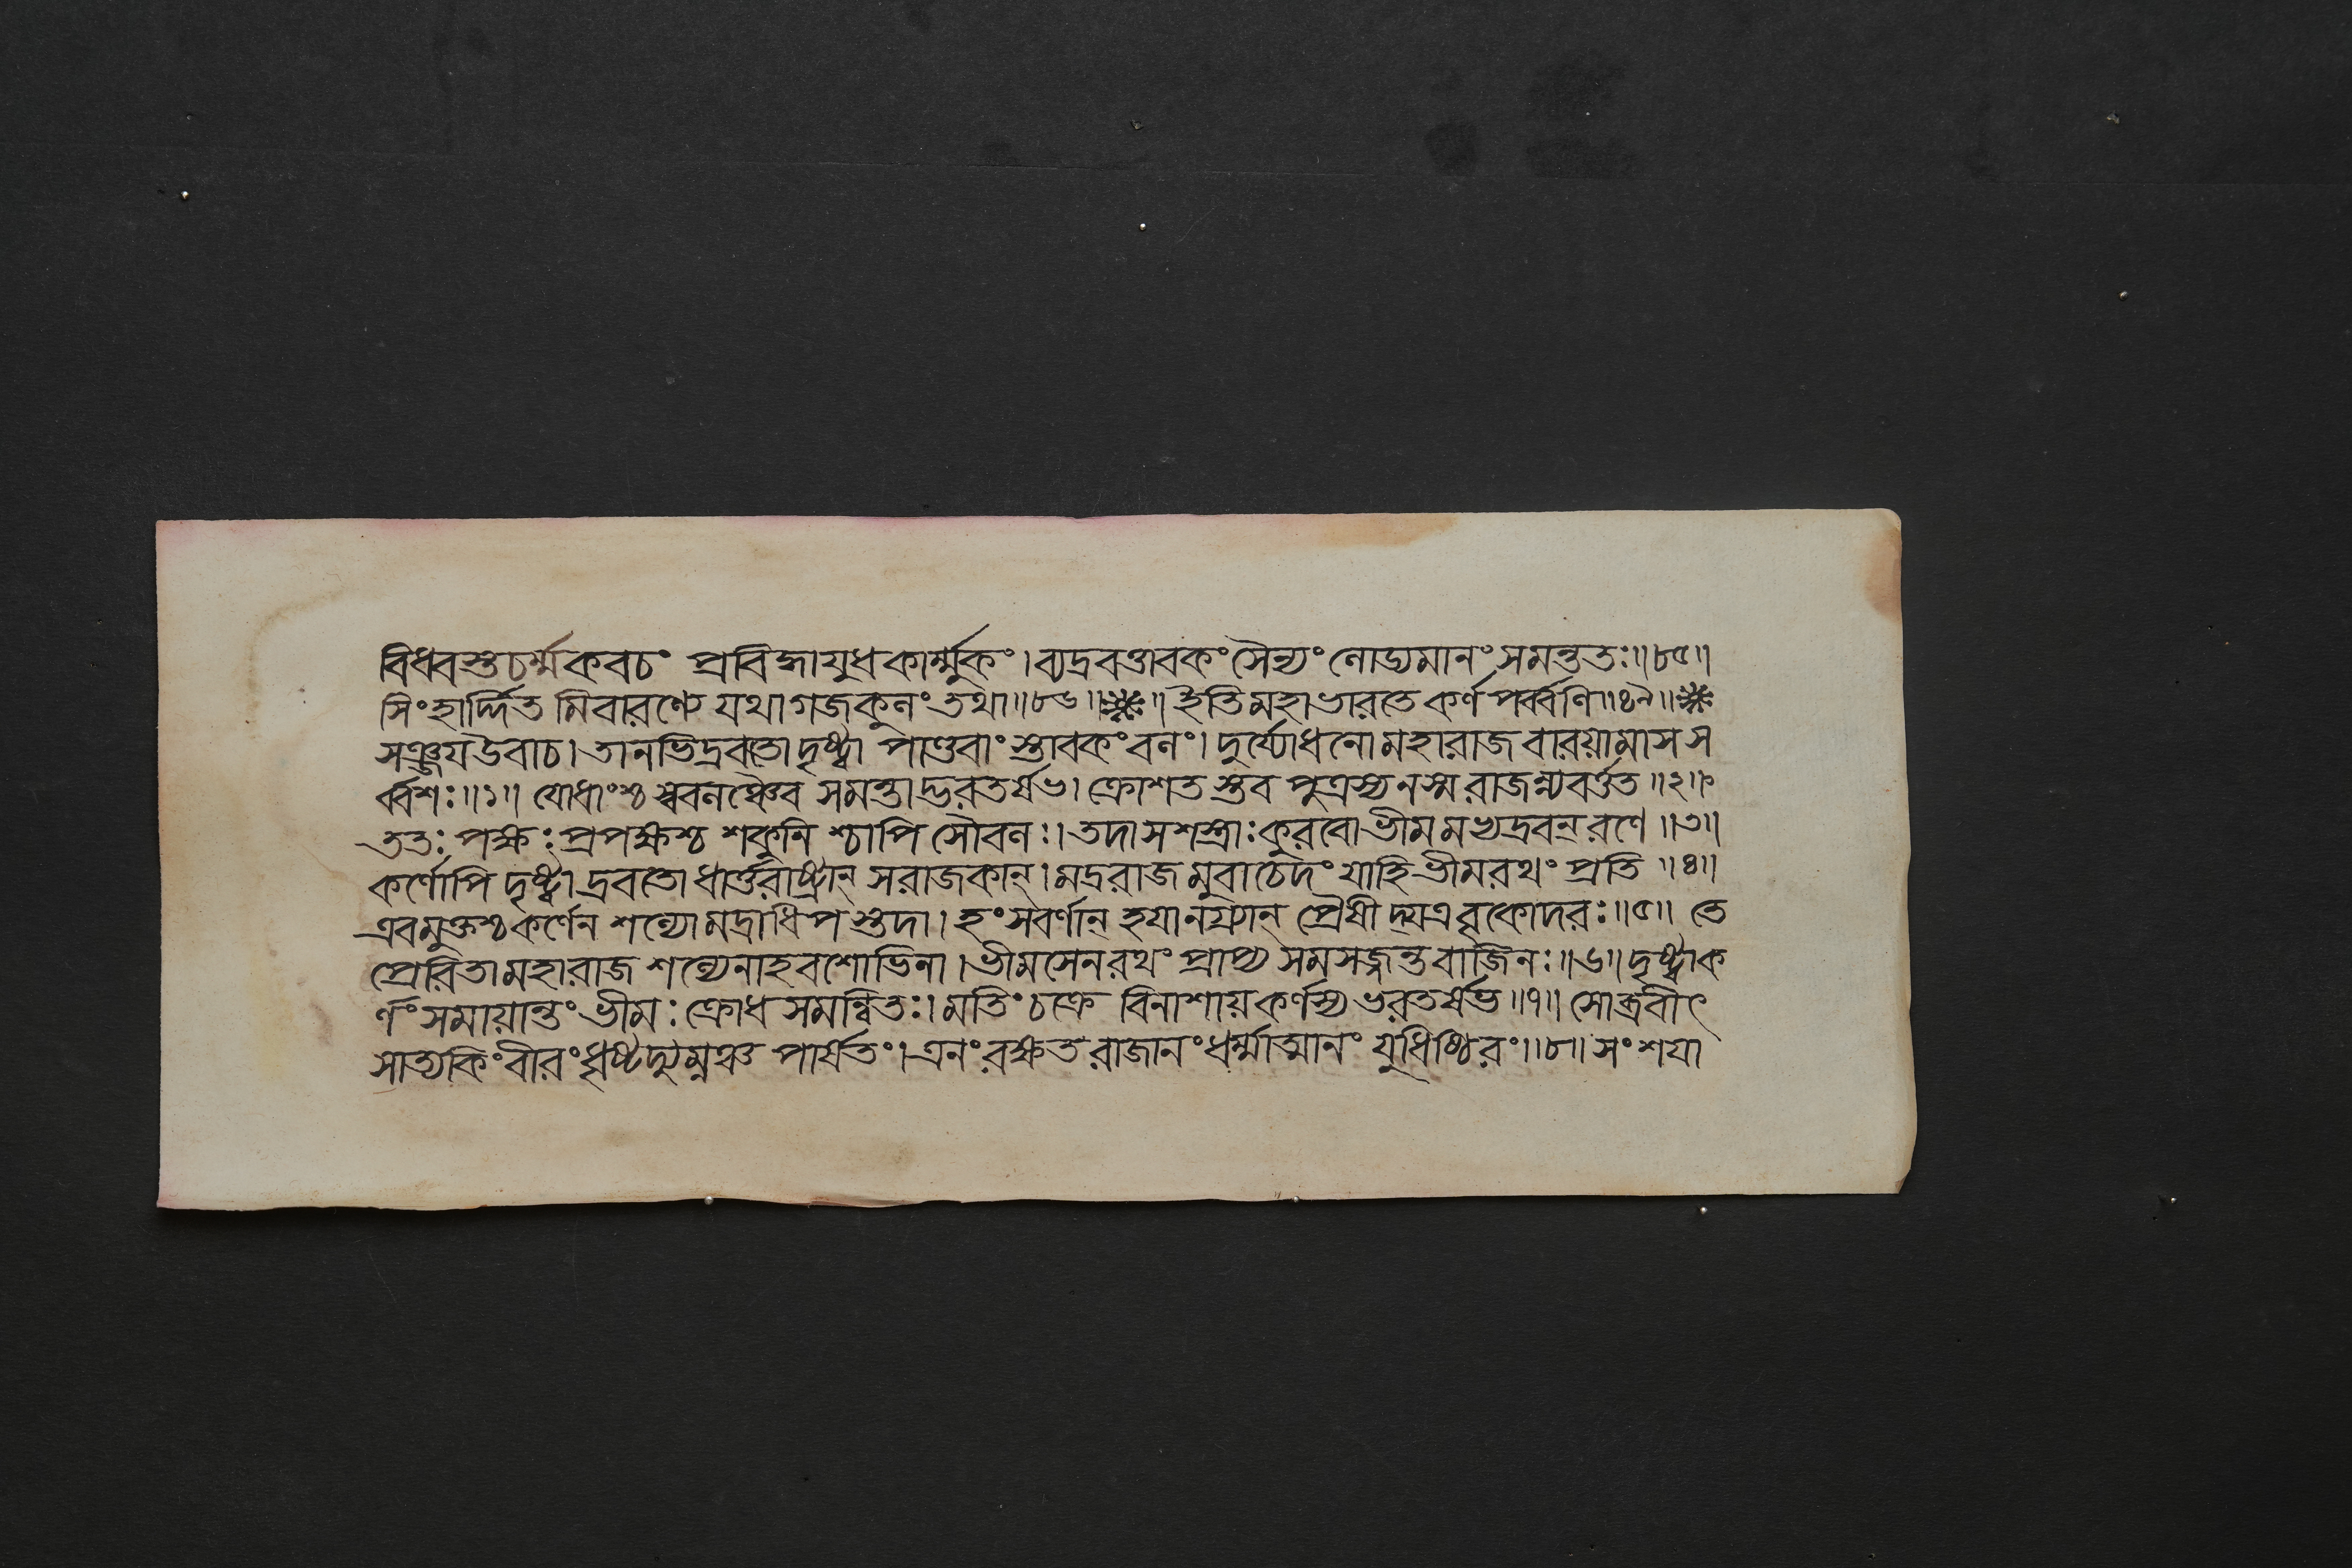 বিধবস্তচর্ম্মকবচং প্রবিহ্বায়ুধকার্ম্মুকং। ব্যদ্রবত্তাবকং সৈন্যং লোড্যমানং সমন্ততঃ॥৮৫॥
সিংহার্দ্দিত মিবারণ্যে যথা গজকুলং তথা॥৮৬॥ ॥ইতি মহাভারতে কর্ণপর্ব্বণি॥৪৯॥
সঞ্জয় উবাচ। তানভিদ্রবতো দৃষ্ট্বা পাণ্ডবাংস্তাবকং বলং। দুর্য্যোধনো মহারাজ বারয়ামাস স
র্ব্বশঃ॥১॥ যোধাংশ্চ স্ববলঞ্চৈব সমন্তাদ্ভরতর্ষভ। ক্রোশতস্তব পুত্রস্য ন স্ম রাজন্ন্যবর্ত্তত॥২॥
ততঃ পক্ষঃ প্রপক্ষশ্চ শকুনি শ্চাপি সৌবলঃ। তদা সশস্ত্রাঃ কুরবো ভীমমভ্যদ্রবন্ রণে॥৩॥
কর্ণোপি দৃষ্ট্বা দ্রবতো ধার্ত্তরাষ্ট্রান্ সরাজকান্। মদ্ররাজমুবাচেদং যাহি ভীমরথং প্রতি॥৪॥
এবমুক্তশ্চ কর্ণেন শল্যো মদ্রাধিপস্তদা। হংসবর্ণান্ হয়ানগ্র্যান্ প্রৈষীদ্যত্র বৃকোদরঃ॥৫॥ তে
প্রেরিতা মহারাজ শল্যেনাহবশোভিনা। ভীমসেনরথং প্রাপ্য সমসজ্জন্ত বাজিনঃ॥৬॥ দৃষ্ট্বা ক
র্ণং সমায়ান্তং ভীমঃ ক্রোধসমন্বিতঃ। মতিং চক্রে বিনাশায় কর্ণস্য ভরতর্ষভ॥৭॥ সোব্রবীৎ
সাত্যকিং বীরং ধৃষ্টদ্যুম্নঞ্চ পার্ষতং। এনং রক্ষত রাজানং ধর্ম্মাত্মানং যুধিষ্ঠিরং॥৮॥ সংশয়া